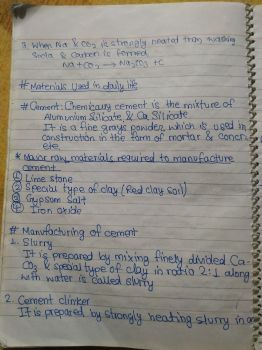 3. When Na & CO2 is strongly heated then washing
Soda & Carbon is formed.
Na + CO2 → Na2CO3 + C
# Materials Used in daily life
# Cement: Chemically cement is the mixture of
Alumunium Silicate & Ca Silicate
It is a fine grays powder which is used in
construction in the form of mortar & concrete,
etc.
* Major raw materials required to manufacture
cement
1 Lime stone
2 Special type of clay (Red clay soil)
3 Gypsom Salt
4 Iron oxide
# Manufacturing of cement
1. Slurry
It is prepared by mixing finely divided Ca-
CO3 & special type of clay in ratio 2:1 along
with water is called slurry
2. Cement clinker
It is prepared by strongly heating slurry in a